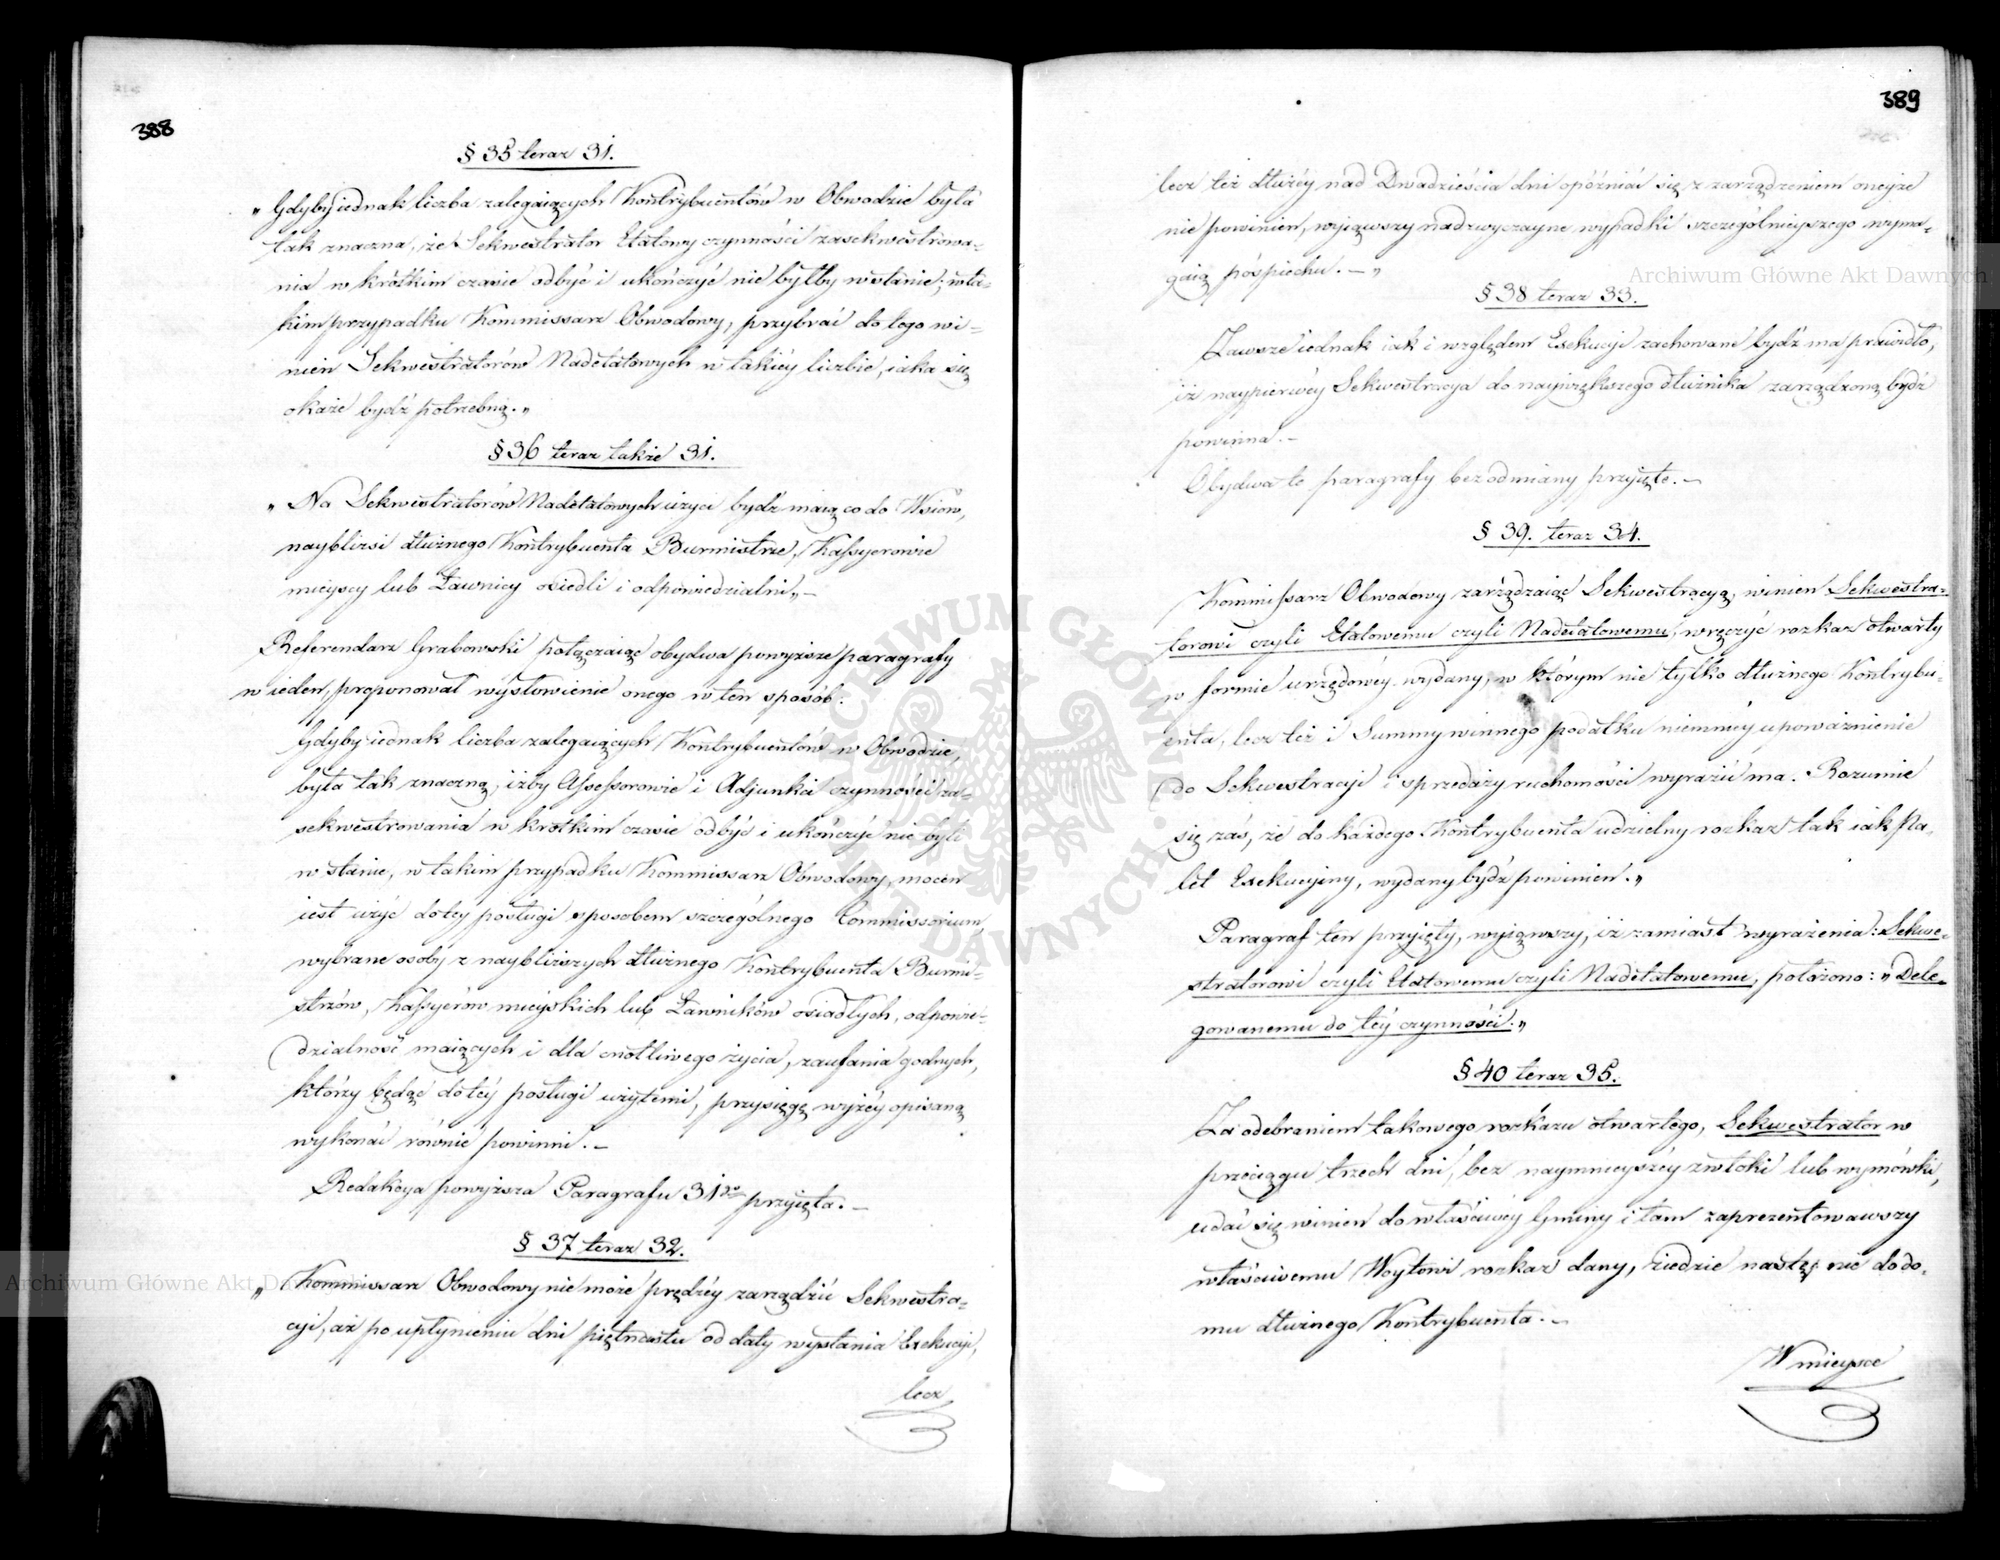 388
§ 35 teraz 31.
„ Gdyby iednak liczba zalegaiących Kontrybuentów w Obwodzie była
tak znaczna, że Sekwestrator Etatowy czynności zasekwestrowa-
nia w krótkim czasie odbyć i ukończyć nie byłby wstanie; wta-
kim przypadku Kommissarz Obwodowy, przybrać do tego wi-
nien Sekwestratorów Nadetatowych w takiéy liczbie, iaka się
okaże bydź potrzebną. „
§ 36 teraz także 31.
„ Na Sekwestratorów Nadetatowych użyci bydź maią co do Wsiów,
naybliżsi dłużnego Kontrybuenta Burmistrze, Kassyerowie
mieyscy lub Ławnicy osiedli i odpowiedzialni „ –
Referendarz Grabowski połączaiąc obydwa powyższe paragrafy
w ieden, proponował wysłowienie onego w ten sposób:
Gdyby iednak liczba zalegaiących Kontrybuentów w Obwodzie,
była tak znaczną, iżby Assessorowie i Adjunkci czynności za-
sekwestrowania w krótkim czasie odbyć i ukończyć nie byli
w stanie, w takim przypadku Kommissarz Obwodowy, mocen
iest użyć do téy posługi sposobem szczególnego Commissorium,
wybrane osoby z naybliższych dłużnego Kontrybuenta Burmi-
strzów, Kassyerów mieyskich lub Ławników osiadłych, odpowie-
dzialność maiących i dla cnotliwego życia, zaufania godnych,
którzy będąc do téy posługi użytemi, przysięgę wyżéy opisaną
wykonać równie powinni. –
Redakcya powyższa Paragrafu 31go przyięta. –
§ 37 teraz 32.
„ Kommissarz Obwodowy nie może prędzéy zarządzić Sekwestra-
cyi, aż po upłynieniu dni piętnastu od daty wysłania Exekucyi,
lecz
389
lecz też dłużéy nad Dwadzieścia dni opóźniać się z zarządzeniem oneyże
nie powinien, wyiąwszy nadzwyczayne wypadki szczególnieyszego wyma-
gaią pośpiechu. – „
§ 38 teraz 33.
Zawsze iednak iak i względem Exekucyi zachowane bydź ma prawidło,
iż naypierwéy Sekwestracya do naywiększego dłużnika zarządzoną bydź
powinna. –
Obydwa te paragrafy bez odmiany przyięte. –
§ 39. teraz 34.
Kommissarz Obwodowy zarządzaiąc Sekwestracyą, winien Sekwestra-
torowi czyli Etatowemu czyli Nadetatowemu, wręczyć rozkaz otwarty
w formie urzędowéy wydany, w którym nie tylko dłużnego Kontrybu-
enta, lecz też i Summy winnego podatku niemniéy upoważnienie
do Sekwestracyi i sprzedaży ruchomości wyrazić ma. Rozumie
się zaś, że do każdego Kontrybuenta udzielny rozkaz tak iak Pa-
let Exekucyiny, wydany bydź powinien. „
Paragraf ten przyięty, wyiąwszy, iż zamiast wyrażenia: Sekwe-
stratorowi czyli Etatowemu czyli Nadetatowemu, położono: „ Dele-
gowanemu do téy czynności. „
§ 40 teraz 35.
Za odebraniem takowego rozkazu otwartego, Sekwestrator w
przeciągu trzech dni, bez naymnieyszéy zwłoki lub wymówki,
udać się winien do właściwéy Gminy i tam zaprezentowawszy
właściwemu Woytowi rozkaz dany, ziedzie następnie do do-
mu dłużnego Kontrybuenta. –
W mieysce
Archiwum Główne Akt Dawnych
ARCHIWUM GŁÓWNE AKT DAWNYCH
Archiwum Główne Akt Dawnych